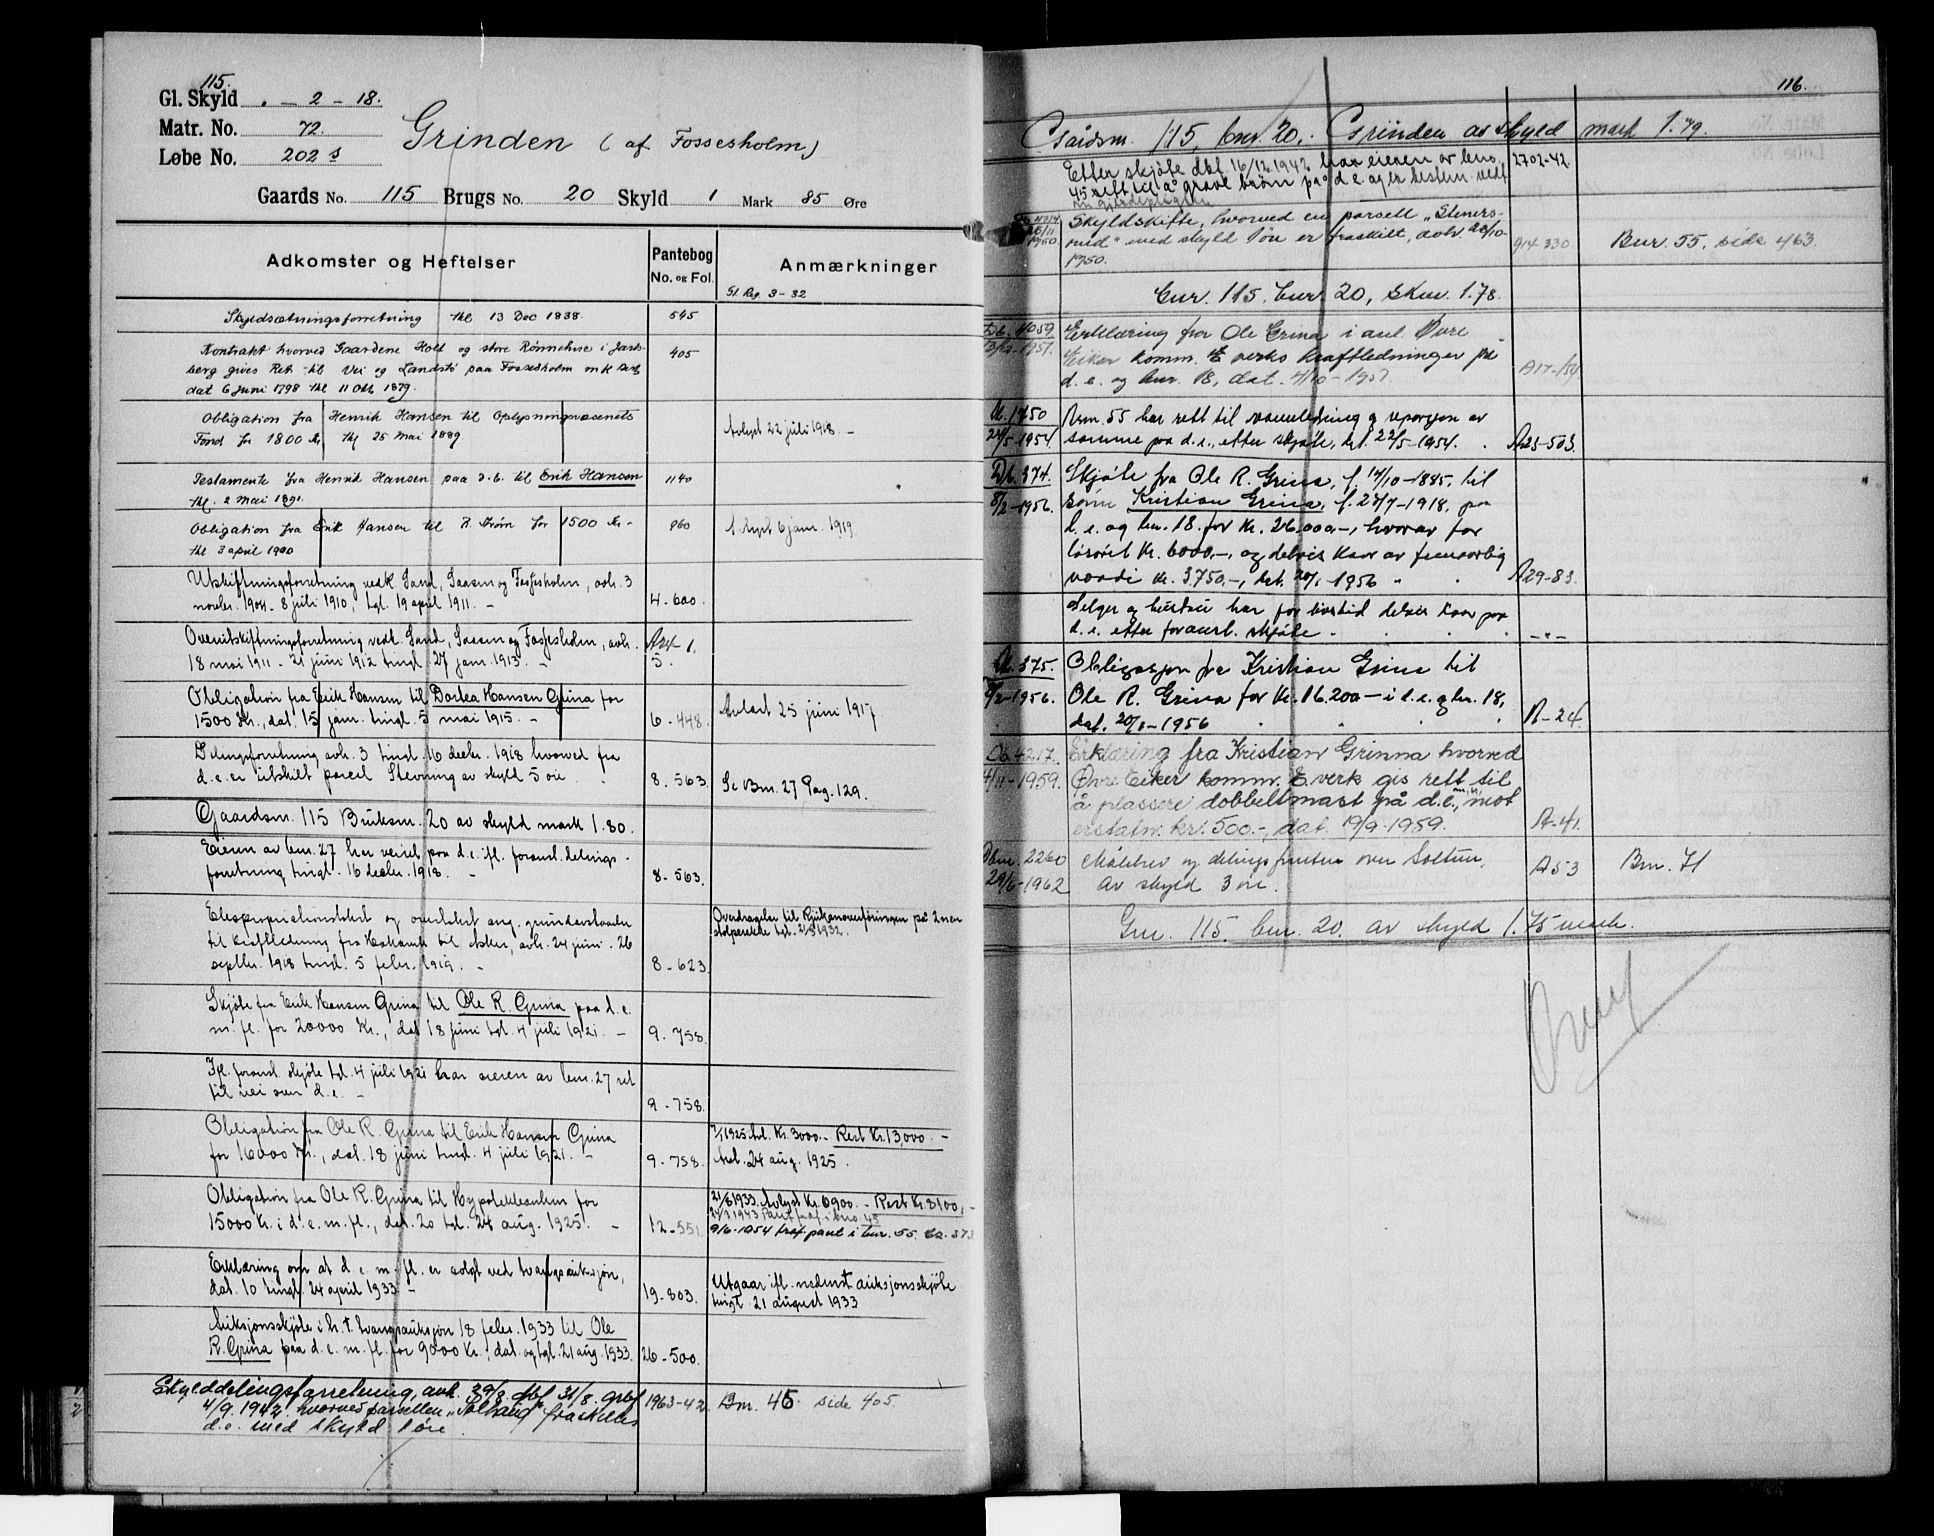 115.
Gl. Skyld . — 2 — 18.
Matr. No. 72.
Løbe No. 202 s
Grinden (af Fossesholm)
Gaards No. 115 Brugs No. 20 Skyld 1 Mark 85 Øre
Adkomster og Heftelser
Pantebog
No. og Fol.
Anmærkninger
Gl. Reg. 3-32
Skyldsætningsforretning thl 13 Dec 1838. 545
Kontrakt hvorved Gaardene Holt og store Rönnehue i
berg gives Ret til Vei og Landstö paa Fossesholm m k 405
dat 6 Juni 1798 thl 11 Okt 1879.
Obligation fra Henrik Hansen til Oplysningsvæsenets
Fond for 1800 Kr thl 25 Mai 1889. Avlyst 22 juli 1918. —
Testamente fra Henrik Hansen paa d.b. til Erik Hansen 1140
thl. 2 Mai 1891.
Obligation fra Erik Hansen til R. Strøm for 1500 Kr. - 960 Avlyst 6 jan. 1919.
thl 3 april 1900
Utskiftningsforretning vedk. Sand, Saasen og Fossesholm, avh. 3
novbr. 1904 - 8 juli 1910, tgl. 19 april 1911. — 4-600.
Overutskiftningsforretning vedk. Sand, Saasen og Fossesholm, avh.
18 mai 1911 - 21 juni 1912 tingl. 27 jan. 1913. — 5.
Obligation fra Erik Hansen til Dortea Hansen Grina for
1500 Kr., dat. 15 jan. tingl. 5 mai 1915. — 6-448. Avlæst 25 juni 1917.
Delingsforretning avh. 3 tingl. 16 decbr. 1918 hvorved fra
d.e. er utskilt parcel Stevning av skyld 5 øre. 8. 563. Se Bm. 27 Pag. 129.
Gaardsm. 115 Bruksm. 20 av skyld mark 1.80.
Eieren av bm. 27 har veiret paa d.e. ifl. foranst. delings-
forretning tingl. 16 decbr. 1918. — 8-563.
Ekspropriationstakst og overtakst ang. grunderstatn
til kraftledning fra Hakavik til Asker, avh. 24 juni - 26
septbr. 1918 tingl. 5 febr. 1919. — 8-623.
Overdragelse til Rjukanoverføringen på 2 nen
stolperekke tgl. 2/5 1932.
Skjøte fra Erik Hansen Grina til Ole R. Grina paa d.e.
m. fl. for 20000 Kr., dat 18 juni tgl. 4 juli 1921. — 9. 758.
Ifl. foranst. skjøte tgl. 4 juli 1921 har eieren av bm. 27 ret
til vei over d.e. — 9-758.
Obligation fra Ole R. Grina til Erik Hansen Grina
for 16000 Kr., dat. 18 juni tingl. 4 juli 1921. — 9-758.
7/1 1925 avl. Kr. 3000. — Rest Kr. 13,000. —
Avl. 24 aug. 1925.
Obligation fra Ole R. Grina til Hypotekbanken for
15000 Kr. i d.e. m. fl., dat. 20 tgl. 24 aug. 1925. — 12-551
21/6 1933. Avlyst Kr. 6900. — Rest Kr. 8100. —
24/9 1943 Pant fraf. i bno 45
9/6-1954 fraf. pant i bnr. 55. Ca. 373
Erklæring om at d.e. m. fl. er solgt ved tvangsauksjon,
dat. 10 tingl. 24 april 1933. — 19-803.
Utgaar ifl. nedenst. auksjonsskjøte
tingl. 21 august 1933
Auksjonsskjøte i h. t. tvangsauksjon 18 febr. 1933 til Ole
R. Grina paa d.e. m. fl. for 9000 Kr., dat. og tgl. 21 aug. 1933. 26-500.
Skylddelingsforretning, avh. 29/8. dbf 31/8. grbf
4/9. 1942. hvorved parsellen "Solhaug" fraskilles 1963-42. Bm. 45 side 405.
d.e. med skyld 1 øre.
116.
Gårdsm. 115, bnr. 20. Grinden av skyld mark 1.79.
Etter skjøte dbf. 16/12. 1942 har eieren av bno. 2702-42.
45 rett til å grave brøn på d.e. og er bestem. vedt.
om gjerdepligten
Db. 4214
20/11
1950.
Skyldskifte, hvorved en parsell "Steners-
med" med skyld 1 øre er fraskilt, avh. 23/10 914 330 Bnr. 55, side 463.
1950.
Gnr. 115. bnr. 20, Skm. 1.78.
Db. 4059
3/12-1951.
Erklæring fra Ole Grina i anl. Øvre
Eiker komm. E verks kraftledninger på
d.e. og bnr. 18, dat. 4/10-1951. A17-154
Db. 1750
24/5-1954
Bnr. 55 har rett til vannledning og reparasjon av
samme paa d.e., etter skjøte, dat. 22/5-1954. A23-503.
Db. 374.
8/2-1956.
Skjøte fra Ole R. Grina, f. 14/10-1885, til
sønn Kristian Grina, f. 23/7-1918, paa
d.e. og bnr. 18. for Kr. 26.000.-, hvorav for
løsøret Kr. 6000.-, og delvis kaar av femaarlig
verdi kr. 3.750.-, dat. 20/1-1956 A29-83.
Selger og hustru har for livstid delvis kaar paa
d.e. etter foranst. skjøte. —"—
Db. 375.
8/2-1956.
Obligasjon fra Kristian Grina til
Ole R. Grina for Kr. 16.200- i d.e. og bnr. 18,
dat. 20/1-1956 B-24.
Db. 4217.
4/11-1959.
Erklæring fra Kristian Grinna hvorved
Øvre Eiker komm. E verk gis rett til
å plassere dobbeltmast på d.e., m.v., mot
erstatn. kr. 500.-, dat. 19/9-1959. A-41.
Dbnr. 2260
29/6-1962
Målebrev og delingsforretn over Soltun, A53 Bm. 71
av skyld 3 øre.
Gnr. 115. bnr. 20. av skyld 1.75 mark.